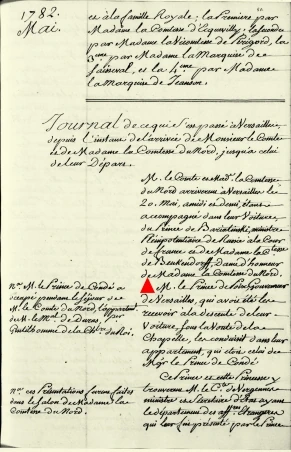 1782.
Mai.
et à la famille Royale; la premiere par
Madame la Comtesse d'Equevilly, la seconde
par Madame la Vicomtesse de Périgord, la
3eme par Madame la Marquise de
et la 4eme par Madame
la Marquise de
Journal de ce qui s'est passé à Versailles
depuis l'instant de l'arrivée de Monsieur le Comte
et de Madame la Comtesse du Nord, jusqu'à celui
de leur Départ.
M. le Comte et Mad.e la Comtesse
du Nord arriverent à Versailles le
20. Mai, à midi et demi, étant
accompagné dans leur Voiture,
du Prince de Bariatinski, ministre
Plénipotentiaire de Russie à la Cour
de france, et de Madame la Ctesse
de Benkendorff, Dame d'honneur
de Madame la Comtesse du Nord.
M. le Prince de Poix, Gouverneur
de Versailles, qui avoit été les
recevoir à la descente de leur
Voiture, sous la Voute de la
Chapelle, les conduisit dans leur
appartement, qui étoit celui de
Mgr. le Prince de Condé
na. M. le Prince de Condé a
occupé pendant le séjour de
M. le Comte du Nord, l'appartemt.
de M. le Mal. de Duras, per.
Gentilhomme de la Chbre. du Roi.
Ce Prince et cette Princesse y
trouverent M. le Cte. de Vergennes
ministre et Secrétaire d'Etat ayant
le département des affres. Etrangeres
qui leur fut présenté par le Prince
na. ces Présentations furent faites
dans le Salon de Madame la
Comtesse du Nord.